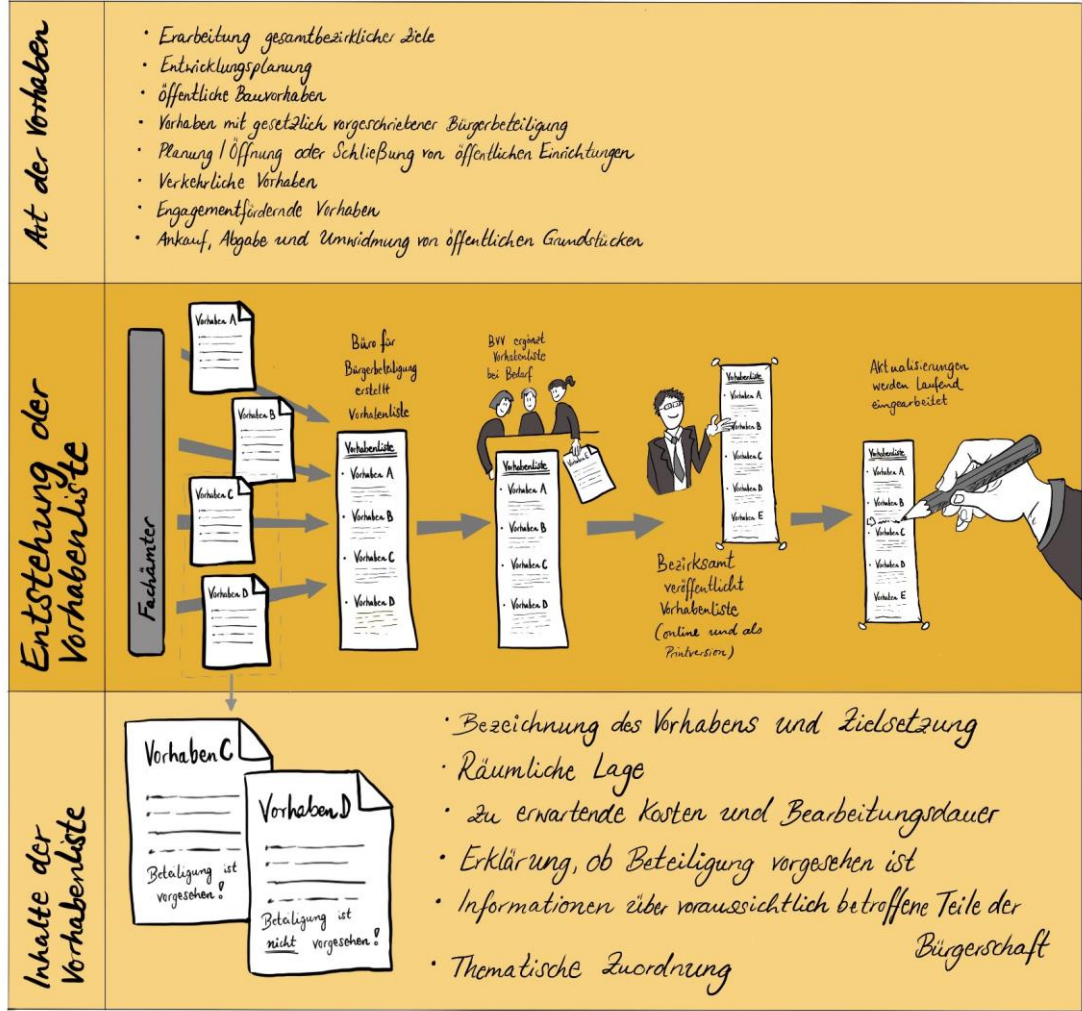 Art der Vorhaben
• Erarbeitung gesamtbezirklicher Ziele
• Entwicklungsplanung
• öffentliche Bauvorhaben
• Vorhaben mit gesetzlich vorgeschriebener Bürgerbeteiligung
• Planung / Öffnung oder Schließung von öffentlichen Einrichtungen
• Verkehrliche Vorhaben
• Engagementfördernde Vorhaben
• Ankauf, Abgabe und Umwidmung von öffentlichen Grundstücken
Entstehung der
Vorhabenliste
Fachämter
Vorhaben A
Vorhaben B
Vorhaben C
Vorhaben D
Büro für
Bürgerbeteiligung
erstellt
Vorhabenliste
Vorhabenliste
• Vorhaben A
• Vorhaben B
• Vorhaben C
• Vorhaben D
BVV ergänzt
Vorhabenliste
bei Bedarf
Vorhaben E
Vorhabenliste
• Vorhaben A
• Vorhaben B
• Vorhaben C
• Vorhaben D
Vorhabenliste
• Vorhaben A
Vorhaben B
• Vorhaben C
• Vorhaben D
• Vorhaben E
Bezirksamt
veröffentlicht
Vorhabenliste
(online und als
Printversion)
Aktualisierungen
werden laufend
eingearbeitet
Vorhabenliste
• Vorhaben A
• Vorhaben B
Vorhaben C
• Vorhaben D
• Vorhaben E
Inhalte der
Vorhabenliste
Vorhaben C
Beteiligung ist
vorgesehen!
Vorhaben D
Beteiligung ist
nicht vorgesehen!
• Bezeichnung des Vorhabens und Zielsetzung
• Räumliche Lage
• Zu erwartende Kosten und Bearbeitungsdauer
• Erklärung, ob Beteiligung vorgesehen ist
• Informationen über voraussichtlich betroffene Teile der
Bürgerschaft
• Thematische Zuordnung